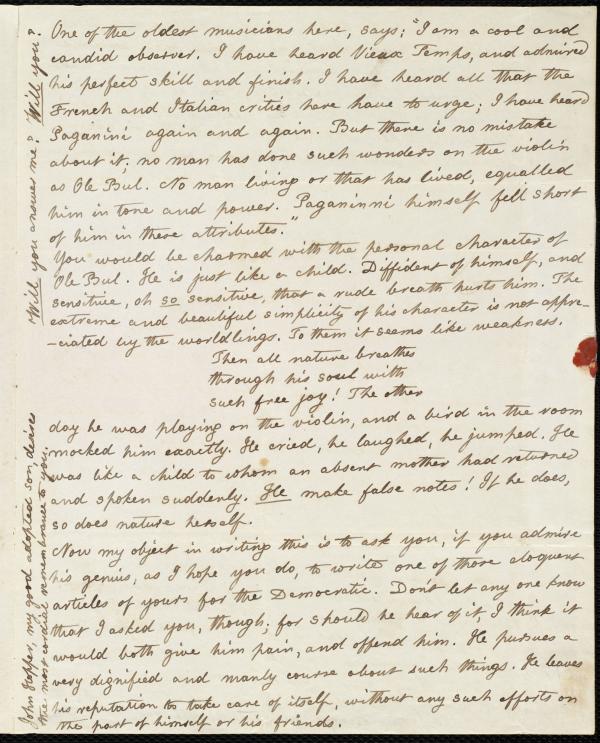 One of the oldest musicians here, says; "I am a cool and
candid observer. I have heard Vieux Temps, and admired
his perfect skill and finish. I have heard all that the
French and Italian critics here have to urge; I have heard
Paganini again and again. But there is no mistake
about it; no man has done such wonders on the violin
as Ole Bul. No man living or that has lived, equalled
him in tone and power. Paganinni himself fell short
of him in these attributes."
You would be charmed with the personal character of
Ole Bul. He is just like a child. Diffident of himself, and
sensitive, oh so sensitive, that a rude breath hurts him. The
extreme and beautiful simplicity of his character is not appre-
-ciated by the worldlings. To them it seems like weakness.
Then all nature breathes
through his soul with
such free joy! The other
day he was playing on the violin, and a bird in the room
mocked him exactly. He cried, he laughed, he jumped. He
was like a child to whom an absent mother had returned
and spoken suddenly. He make false notes! If he does,
so does nature herself.
Now my object in writing this is to ask you, if you admire
his genius, as I hope you do, to write one of those eloquent
articles of yours for the Democratic. Don't let any one know
that I asked you, though; for should he hear of it, I think it
would both give him pain, and offend him. He pursues a
very dignified and manly course about such things. He leaves
his reputation to take care of itself, without any such efforts on
the part of himself or his friends.
Will you answer me? Will you?
John Hopper, my good adopted son, desires
the most cordial remembrance to you.